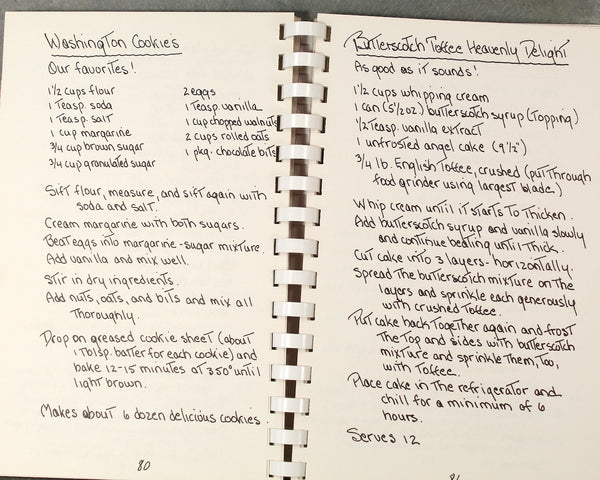 Washington Cookies
Our favorites!
1 1/2 cups flour
1 Teasp. soda
1 Teasp. salt
1 cup margarine
3/4 cup brown sugar
3/4 cup granulated sugar
2 eggs
1 Teasp. vanilla
1 cup chopped walnuts
2 cups rolled oats
1 pkg. chocolate bits
Sift flour, measure, and sift again with
soda and salt.
Cream margarine with both sugars.
Beat eggs into margarine-sugar mixture.
Add vanilla and mix well.
Stir in dry ingredients.
Add nuts, oats, and bits and mix all
Thoroughly.
Drop on greased cookie sheet (about
1 Tblsp. batter for each cookie) and
bake 12-15 minutes at 350° until
light brown.
Makes about 6 dozen delicious cookies.
80
Butterscotch Toffee Heavenly Delight
As good as it sounds!
1 1/2 cups whipping cream
1 can (5 1/2 oz.) butterscotch syrup (Topping)
1/2 Teasp. vanilla extract
1 unfrosted angel cake (9 1/2")
3/4 lb. English Toffee, crushed (put Through
food grinder using largest blade)
Whip cream until it starts To Thicken.
Add butterscotch syrup and vanilla slowly
and continue beating until Thick.
Cut cake into 3 layers - horizontally.
Spread the butterscotch mixture on the
layers and sprinkle each generously
with crushed Toffee.
Put cake back Together again and frost
The Top and sides with butterscotch
mixture and sprinkle Them, Too,
with Toffee.
Place cake in the refrigerator and
chill for a minimum of 6
hours.
Serves 12